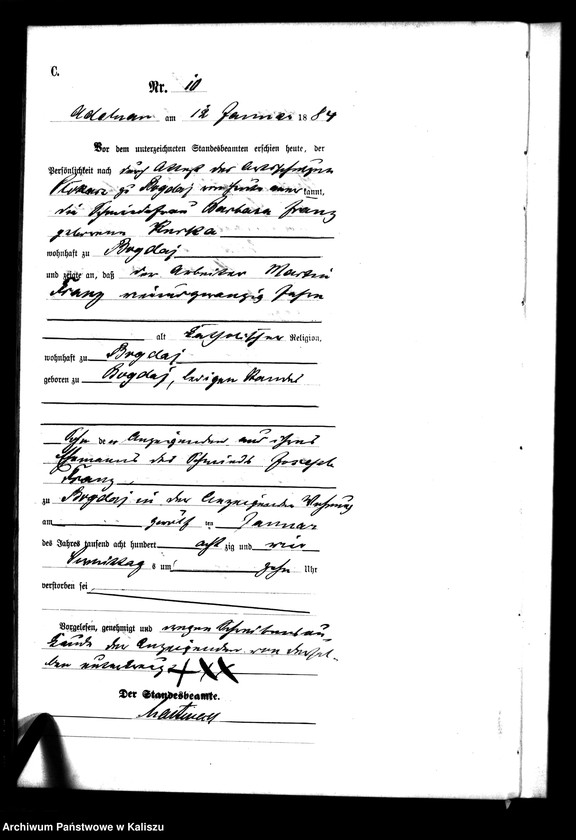 C.
Nr. 10
Adelnau am 12 Januar 1884
Vor dem unterzeichneten Standesbeamten erschien heute, der
Persönlichkeit nach durch Attest des Ortsschulzen
zu Bogdaj kannt,
die Schmiedefrau Barbara Franz
geborene Kurka
wohnhaft zu Bogdaj
und zeigte an, daß der Arbeiter Martin
Franz einundzwanzig Jahre
alt katholischer Religion,
wohnhaft zu Bogdaj
geboren zu Bogdaj, ledigen Standes
Sohn der Anzeigenden und ihres
Ehemanns des Schmieds Joseph
Franz,
zu Bogdaj in der Anzeigenden Wohnung
am ten Januar
des Jahres tausend acht hundert acht zig und vier
Vormittags um zehn Uhr
verstorben sei
Vorgelesen, genehmigt und wegen Schreibensun-
kunde der Anzeigenden von dersel-
ben unterkreuzt +XX
Der Standesbeamte.
Archiwum Państwowe w Kaliszu